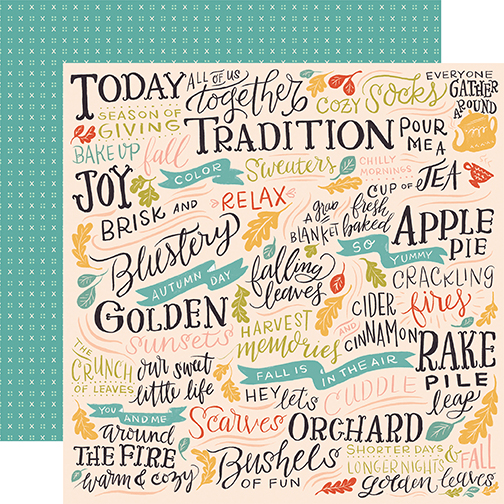 TODAY
ALL OF US
together
COZY SOCKS
EVERYONE
GATHER
AROUND
SEASON OF
GIVING
TRADITION
POUR
ME A
BAKE UP
fall
COLOR
Sweaters
CHILLY
MORNINGS
CUP OF TEA
JOY
BRISK AND
RELAX
a grab
BLANKET
fresh
baked
APPLE
PIE
Blustery
AUTUMN DAY
falling
leaves
SO
YUMMY
CRACKLING
fires
GOLDEN
sunsets
HARVEST
memories
AND
CIDER
CINNAMON
ROAKE
PILE
leap
THE
CRUNCH
OF LEAVES
our sweet
little life
FALL IS IN THE AIR
HEY let's
CUDDLE
YOU AND ME
around
THE FIRE
warm & cozy
Scarves
ORCHARD
Bushels
OF FUN
SHORTER DAYS
LONGER NIGHTS
& FALL
golden leaves